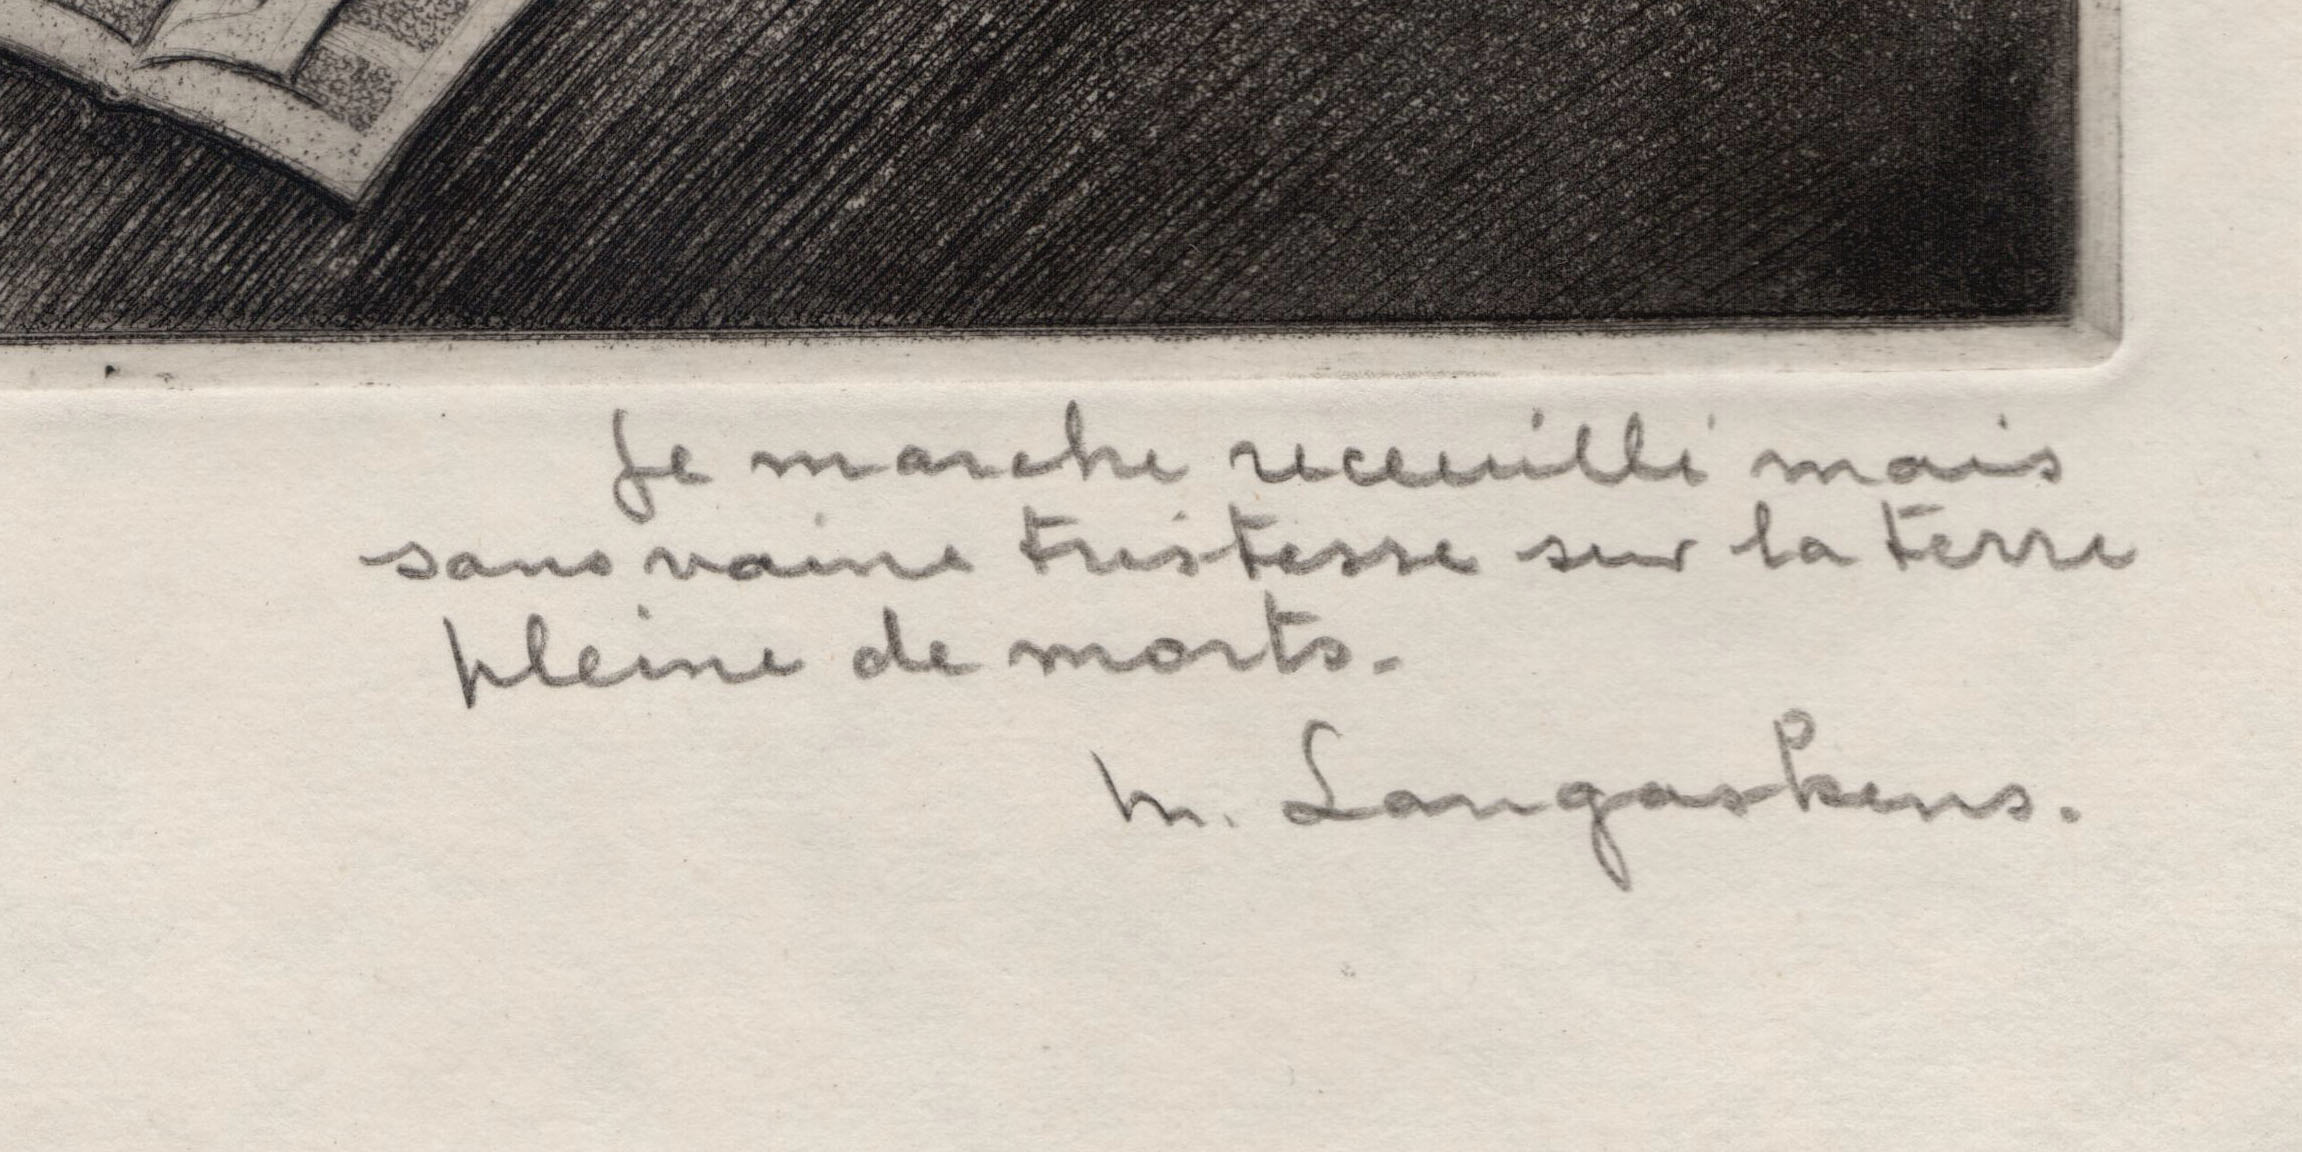 Je marche receuilli mais
sans vaine tristesse sur la terre
pleine de morts.
M. Langaskens.